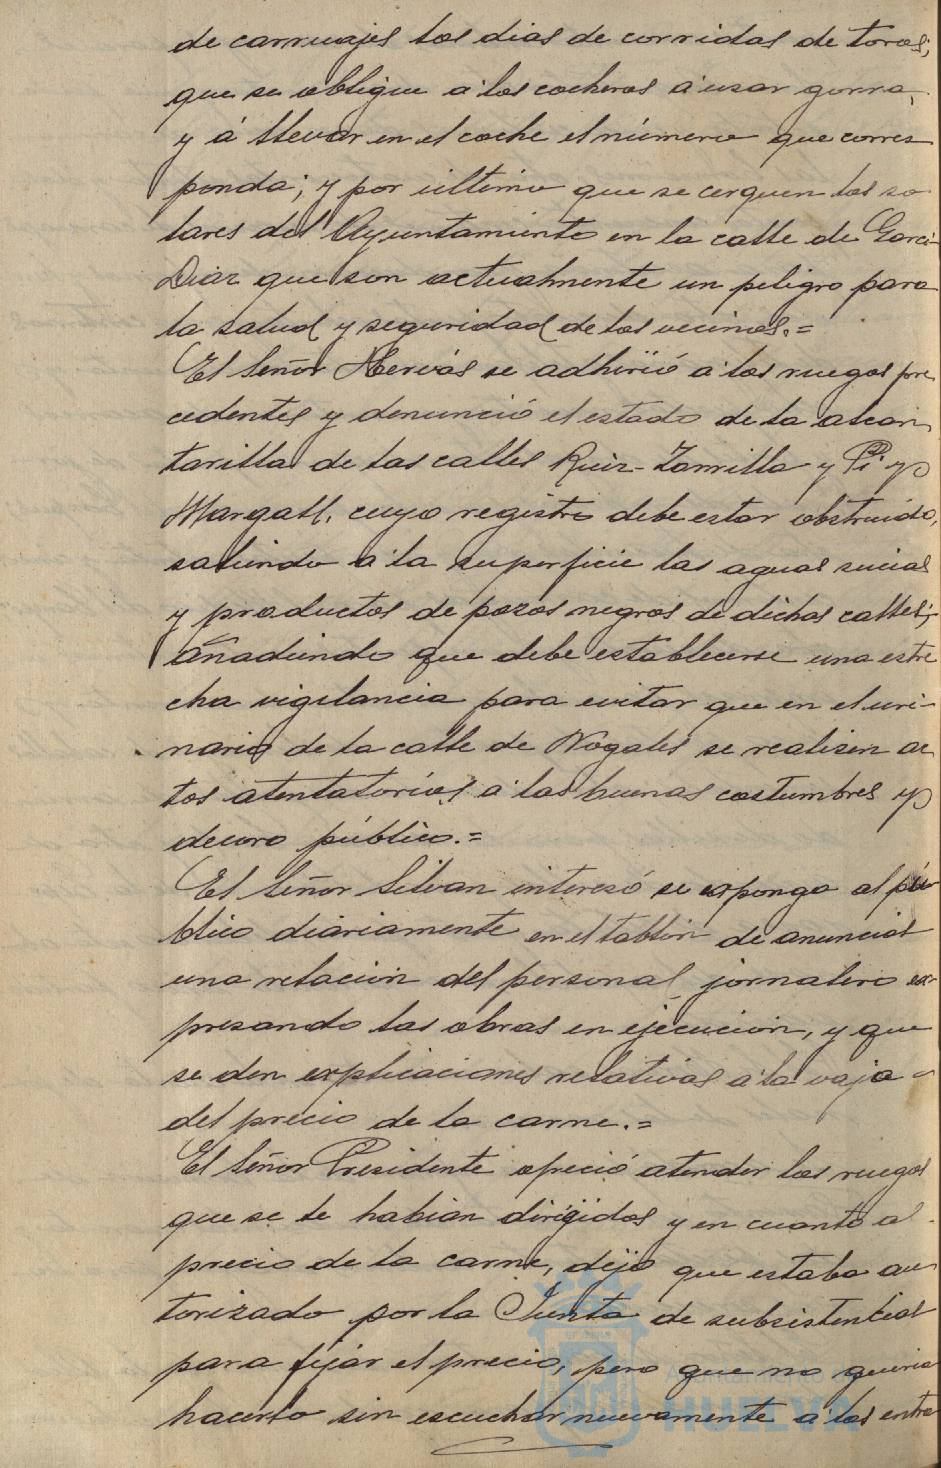 de carruajes los dias de corridas de toros;
que se obligue á los cocheros á usar gorra,
y á llevar en el coche el número que corres
ponda; y por último que se cerquen los so
lares del Ayuntamiento en la calle de Garci-
Diaz que son actualmente un peligro para
la salud y seguridad de los vecinos.=
El Señor Hervás se adhirió á los ruegos pre
cedentes y denunció el estado de la alcan
tarilla de las calles Ruiz-Zorrilla y Pi y
Margall, cuyo registro debe estar obstruido,
saliendo á la superficie las aguas sucias
y productos de pozos negros de dichas calles;
añadiendo que debe establecerse una estre
cha vigilancia para evitar que en el uri-
nario de la calle de Nogales se realisen ac
tos atentatorios á las buenas costumbres y
decoro público.=
El Señor Silvan interesó se exponga al pú
blico diariamente en el tablón de anuncios
una relación del personal jornalero ex-
presando las obras en ejecución, y que
se den explicaciones relativas á la vaja
del precio de la carne.=
El Señor Presidente ofreció atender los ruegos
que se le habian dirigidos y en cuanto al
precio de la carne, dijo que estaba au
torizado por la Junta de subsistencias
para fijar el precio, pero que no queria
hacerlo sin escuchar nuevamente á los entra
HUELVA